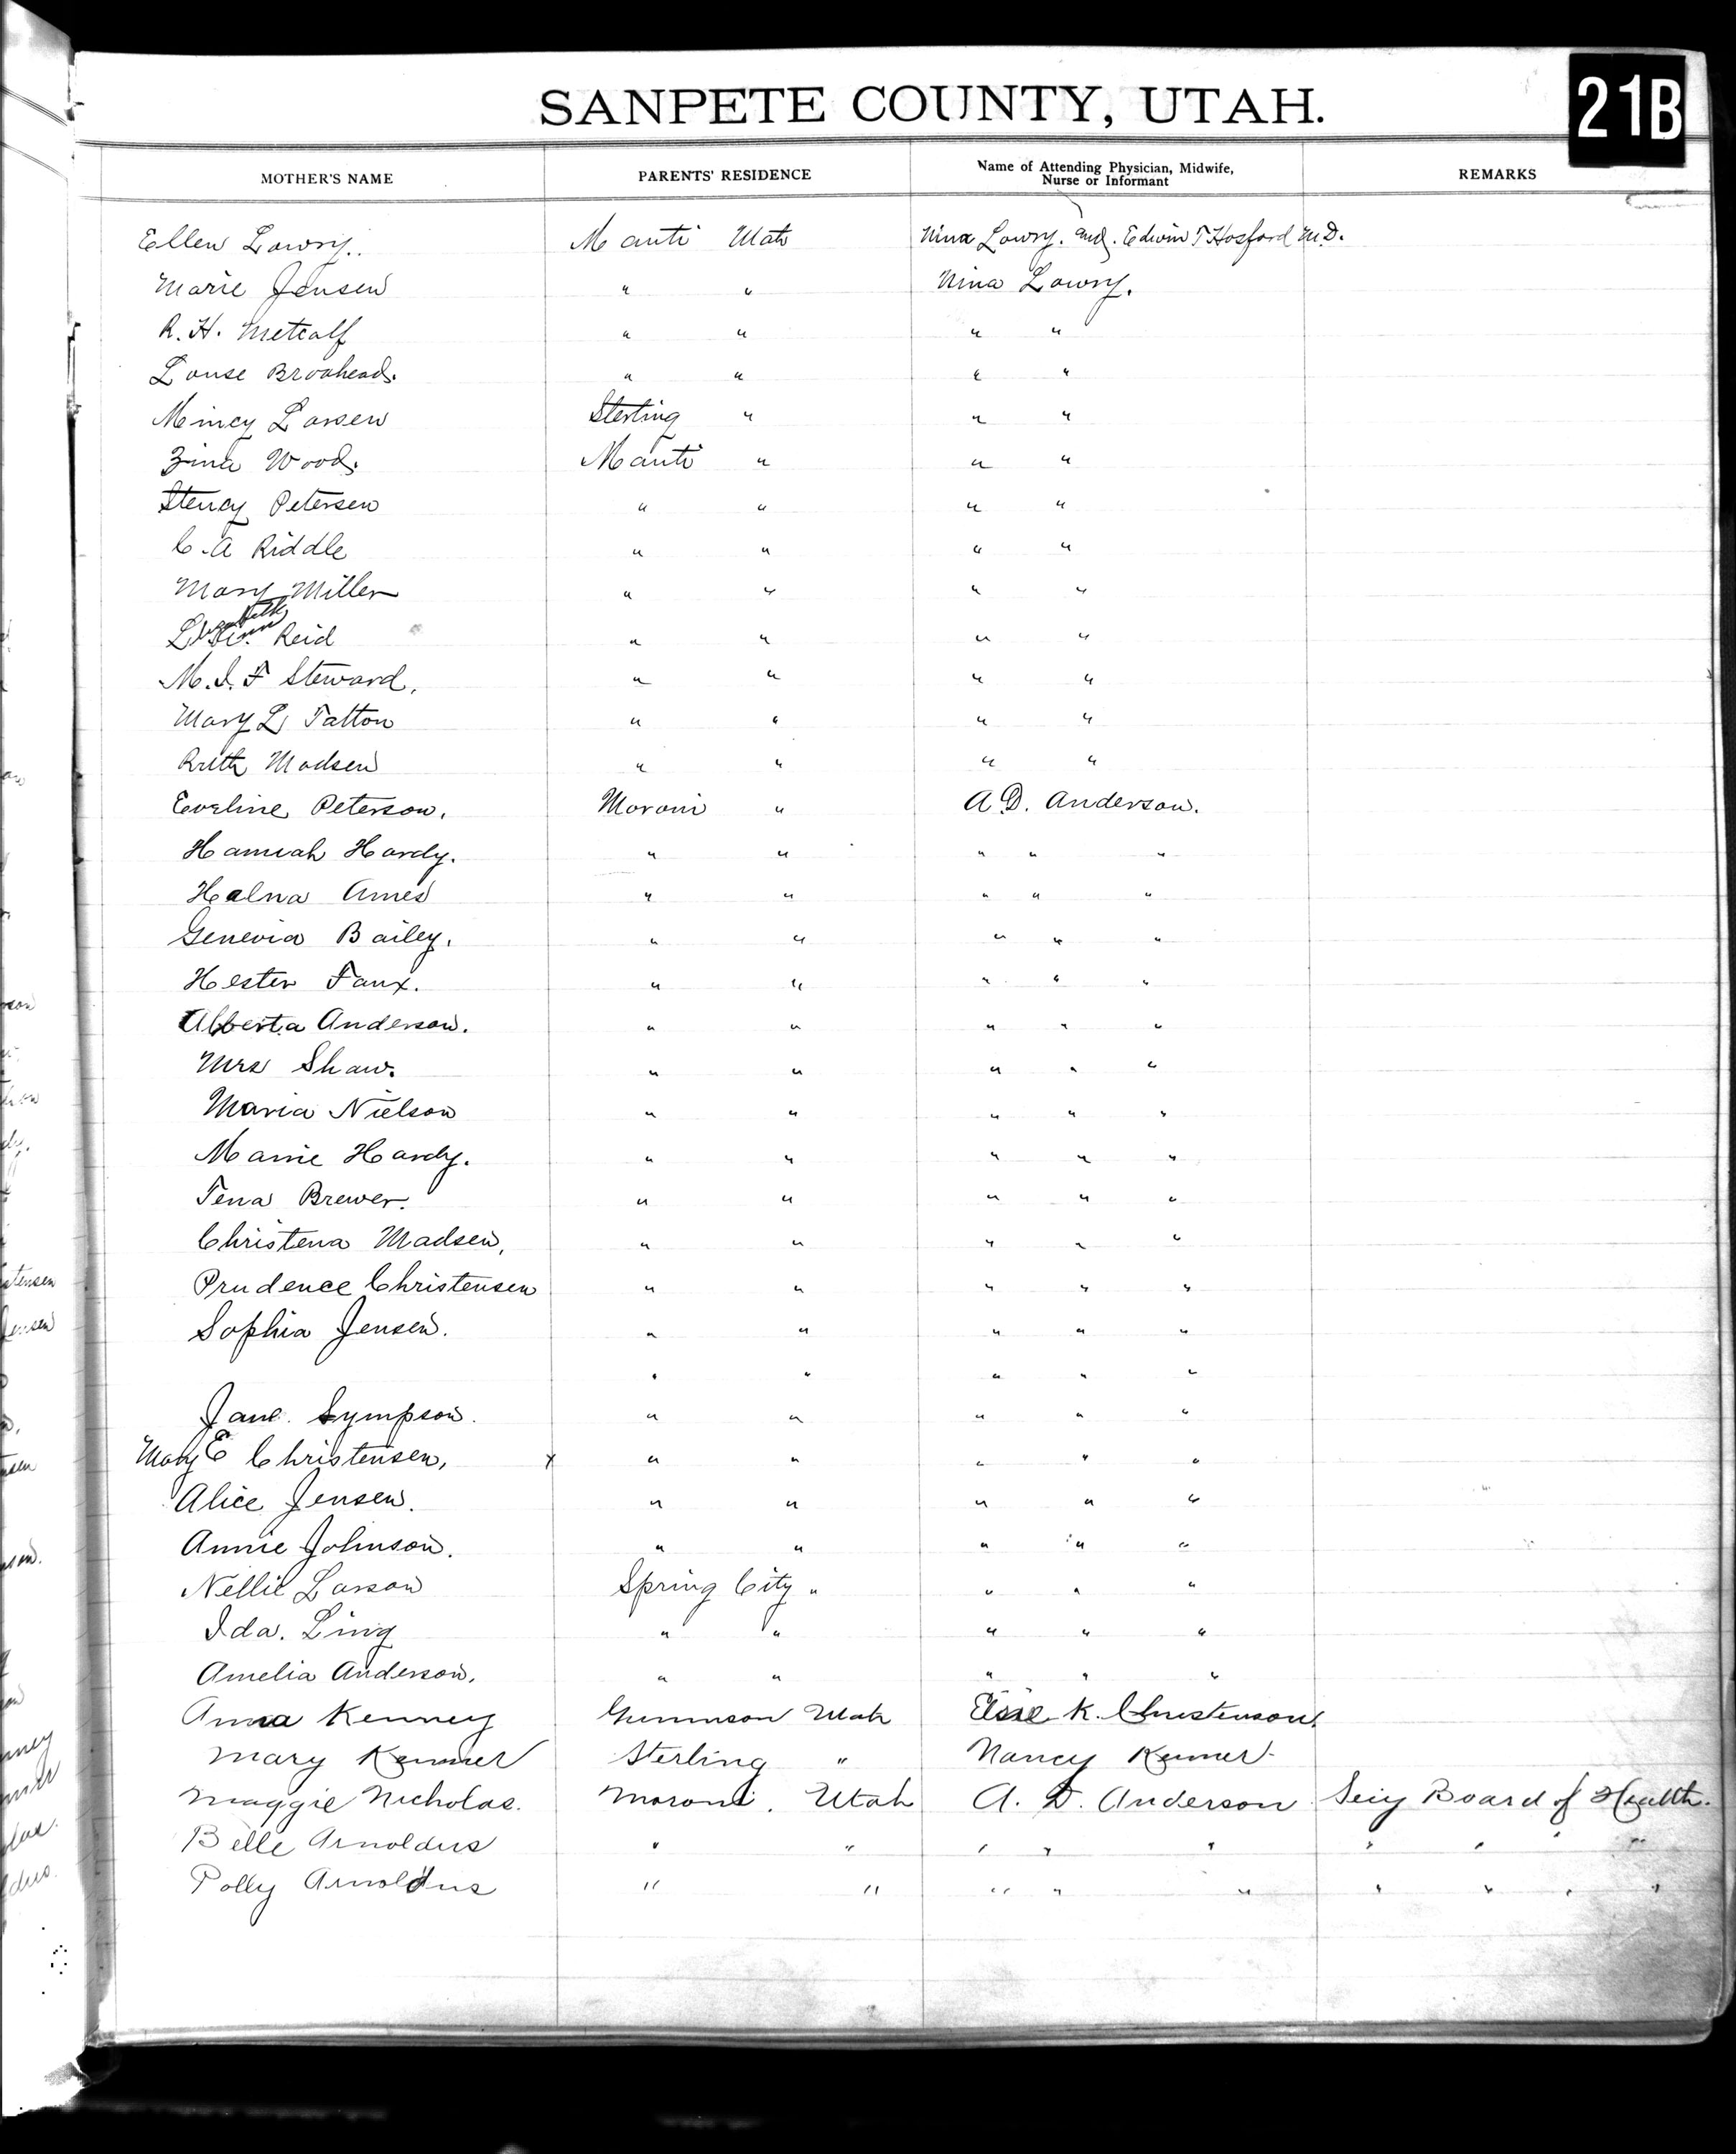 SANPETE COUNTY, UTAH. 21B
MOTHER'S NAME PARENTS' RESIDENCE Name of Attending Physician, Midwife, Nurse or Informant REMARKS
Ellen Lowry. Manti Utah Nina Lowry. and. Edwin T Hosford M.D.
Marie Jensen " " Nina Lowry.
R. H. Metcalf " " " "
Louse Broahead. " " " "
Mincy Larsen Sterling " " "
Zina Wood. Manti " " "
Stency Petersen " " " "
C. A Riddle " " " "
Mary Miller " " " "
Elizabeth Ann Reid " " " "
M. I. F Steward. " " " "
Mary L Tatton " " " "
Ruth Madsen " " " "
Eveline Peterson. Moroni " A D. Anderson.
Hannah Hardy. " " " " "
Halna Ames " " " " "
Genevia Bailey. " " " " "
Hester Faux. " " " " "
Alberta Anderson. " " " " "
Mrs Shaw. " " " " "
Maria Nielson " " " " "
Mamie Hardy. " " " " "
Tena Brewer. " " " " "
Christena Madsen, " " " " "
Prudence Christensen " " " " "
Sophia Jensen. " " " " "
" " " " "
Jane Sympson. " " " " "
Mary E Christensen, x " " " " "
Alice Jensen. " " " " "
Annie Johnson. " " " " "
Nellie Larson Spring City " " " "
Ida. Ling " " " " "
Amelia Anderson. " " " " "
Anna Kenney Gunnison Utah Elsie K. Christenson.
Mary Kenner Sterling " Nancy Kenner
Maggie Nicholas. Moroni. Utah A. D. Anderson Board of Health.
Belle Arnoldus " " " " " " " " "
Polly Arnoldus " " " " " " " " "